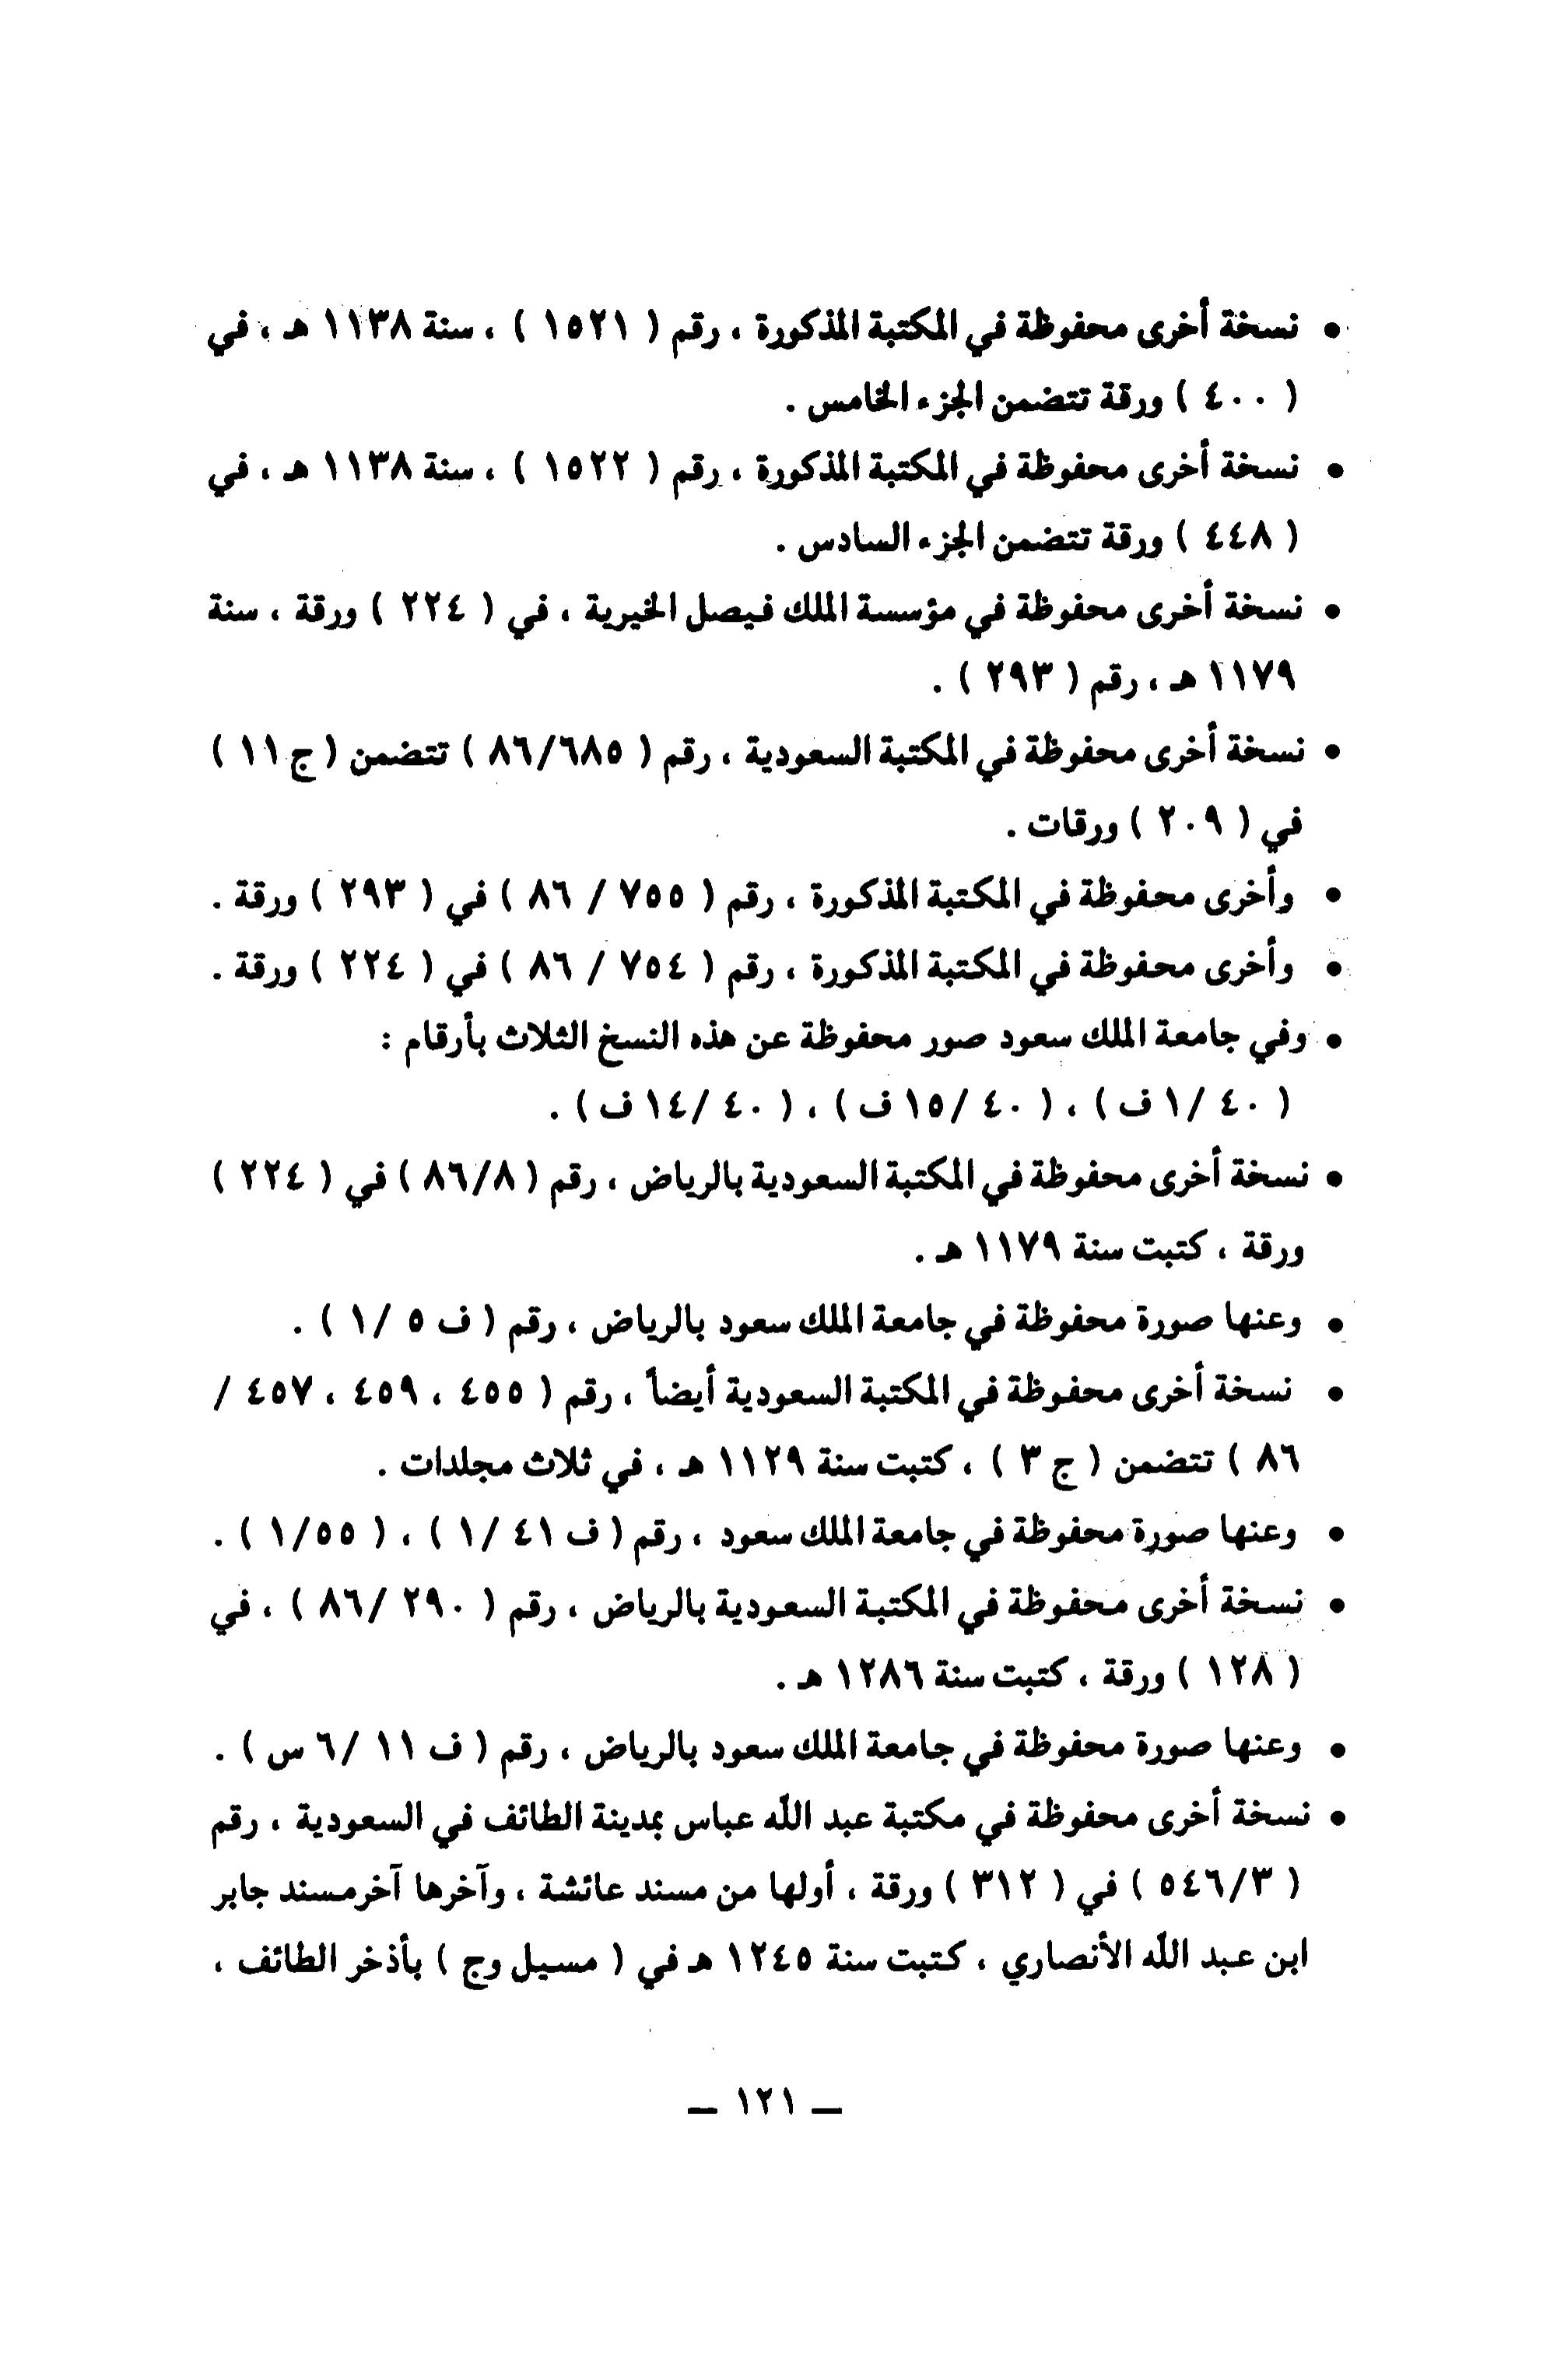 • نسخة أخرى محفوظة في المكتبة المذكورة ، رقم ( ١٥٢١ ) ، سنة ١١٣٨ هـ ، في
( ٤٠٠ ) ورقة تتضمن الجزء الخامس .
• نسخة أخرى محفوظة في المكتبة المذكورة ، رقم ( ١٥٢٢ ) ، سنة ١١٣٨ هـ ، في
( ٤٤٨ ) ورقة تتضمن الجزء السادس .
• نسخة أخرى محفوظة في مؤسسة الملك فيصل الخيرية ، في ( ٢٢٤ ) ورقة ، سنة
١١٧٩ هـ ، رقم ( ٢٩٣ ) .
• نسخة أخرى محفوظة في المكتبة السعودية ، رقم ( ٨٦/٦٨٥ ) تتضمن ( ج ١١ )
في ( ٢٠٩ ) ورقات .
• وأخرى محفوظة في المكتبة المذكورة ، رقم ( ٧٥٥ / ٨٦ ) في ( ٢٩٣ ) ورقة .
• وأخرى محفوظة في المكتبة المذكورة ، رقم ( ٧٥٤ / ٨٦ ) في ( ٢٢٤ ) ورقة .
• وفي جامعة الملك سعود صور محفوظة عن هذه النسخ الثلاث بأرقام :
( ٤٠ /١ ف ) ، ( ٤٠ /١٥ ف ) ، ( ٤٠ /١٤ ف ) .
• نسخة أخرى محفوظة في المكتبة السعودية بالرياض ، رقم ( ٨٦/٨ ) في ( ٢٢٤ )
ورقة ، كتبت سنة ١١٧٩ هـ .
• وعنها صورة محفوظة في جامعة الملك سعود بالرياض ، رقم ( ف ٥ /١ ) .
• نسخة أخرى محفوظة في المكتبة السعودية أيضاً ، رقم ( ٤٥٥ ، ٤٥٩ ، ٤٥٧ /
٨٦ ) تتضمن ( ج ٣ ) ، كتبت سنة ١١٢٩ هـ ، في ثلاث مجلدات .
• وعنها صورة محفوظة في جامعة الملك سعود ، رقم ( ف ٤١ /١ ) ، ( ١/٥٥ ) .
• نسخة أخرى محفوظة في المكتبة السعودية بالرياض ، رقم ( ٢٩٠ /٨٦ ) ، في
( ١٢٨ ) ورقة ، كتبت سنة ١٢٨٦ هـ .
• وعنها صورة محفوظة في جامعة الملك سعود بالرياض ، رقم ( ف ١١ /٦ س ) .
• نسخة أخرى محفوظة في مكتبة عبد الله عباس بمدينة الطائف في السعودية ، رقم
( ٥٤٦/٣ ) في ( ٣١٢ ) ورقة ، أولها من مسند عائشة ، وآخرها آخر مسند جابر
ابن عبد الله الأنصاري ، كتبت سنة ١٢٤٥ هـ في ( مسيل وج ) بأذخر الطائف ،
— ١٢١ —